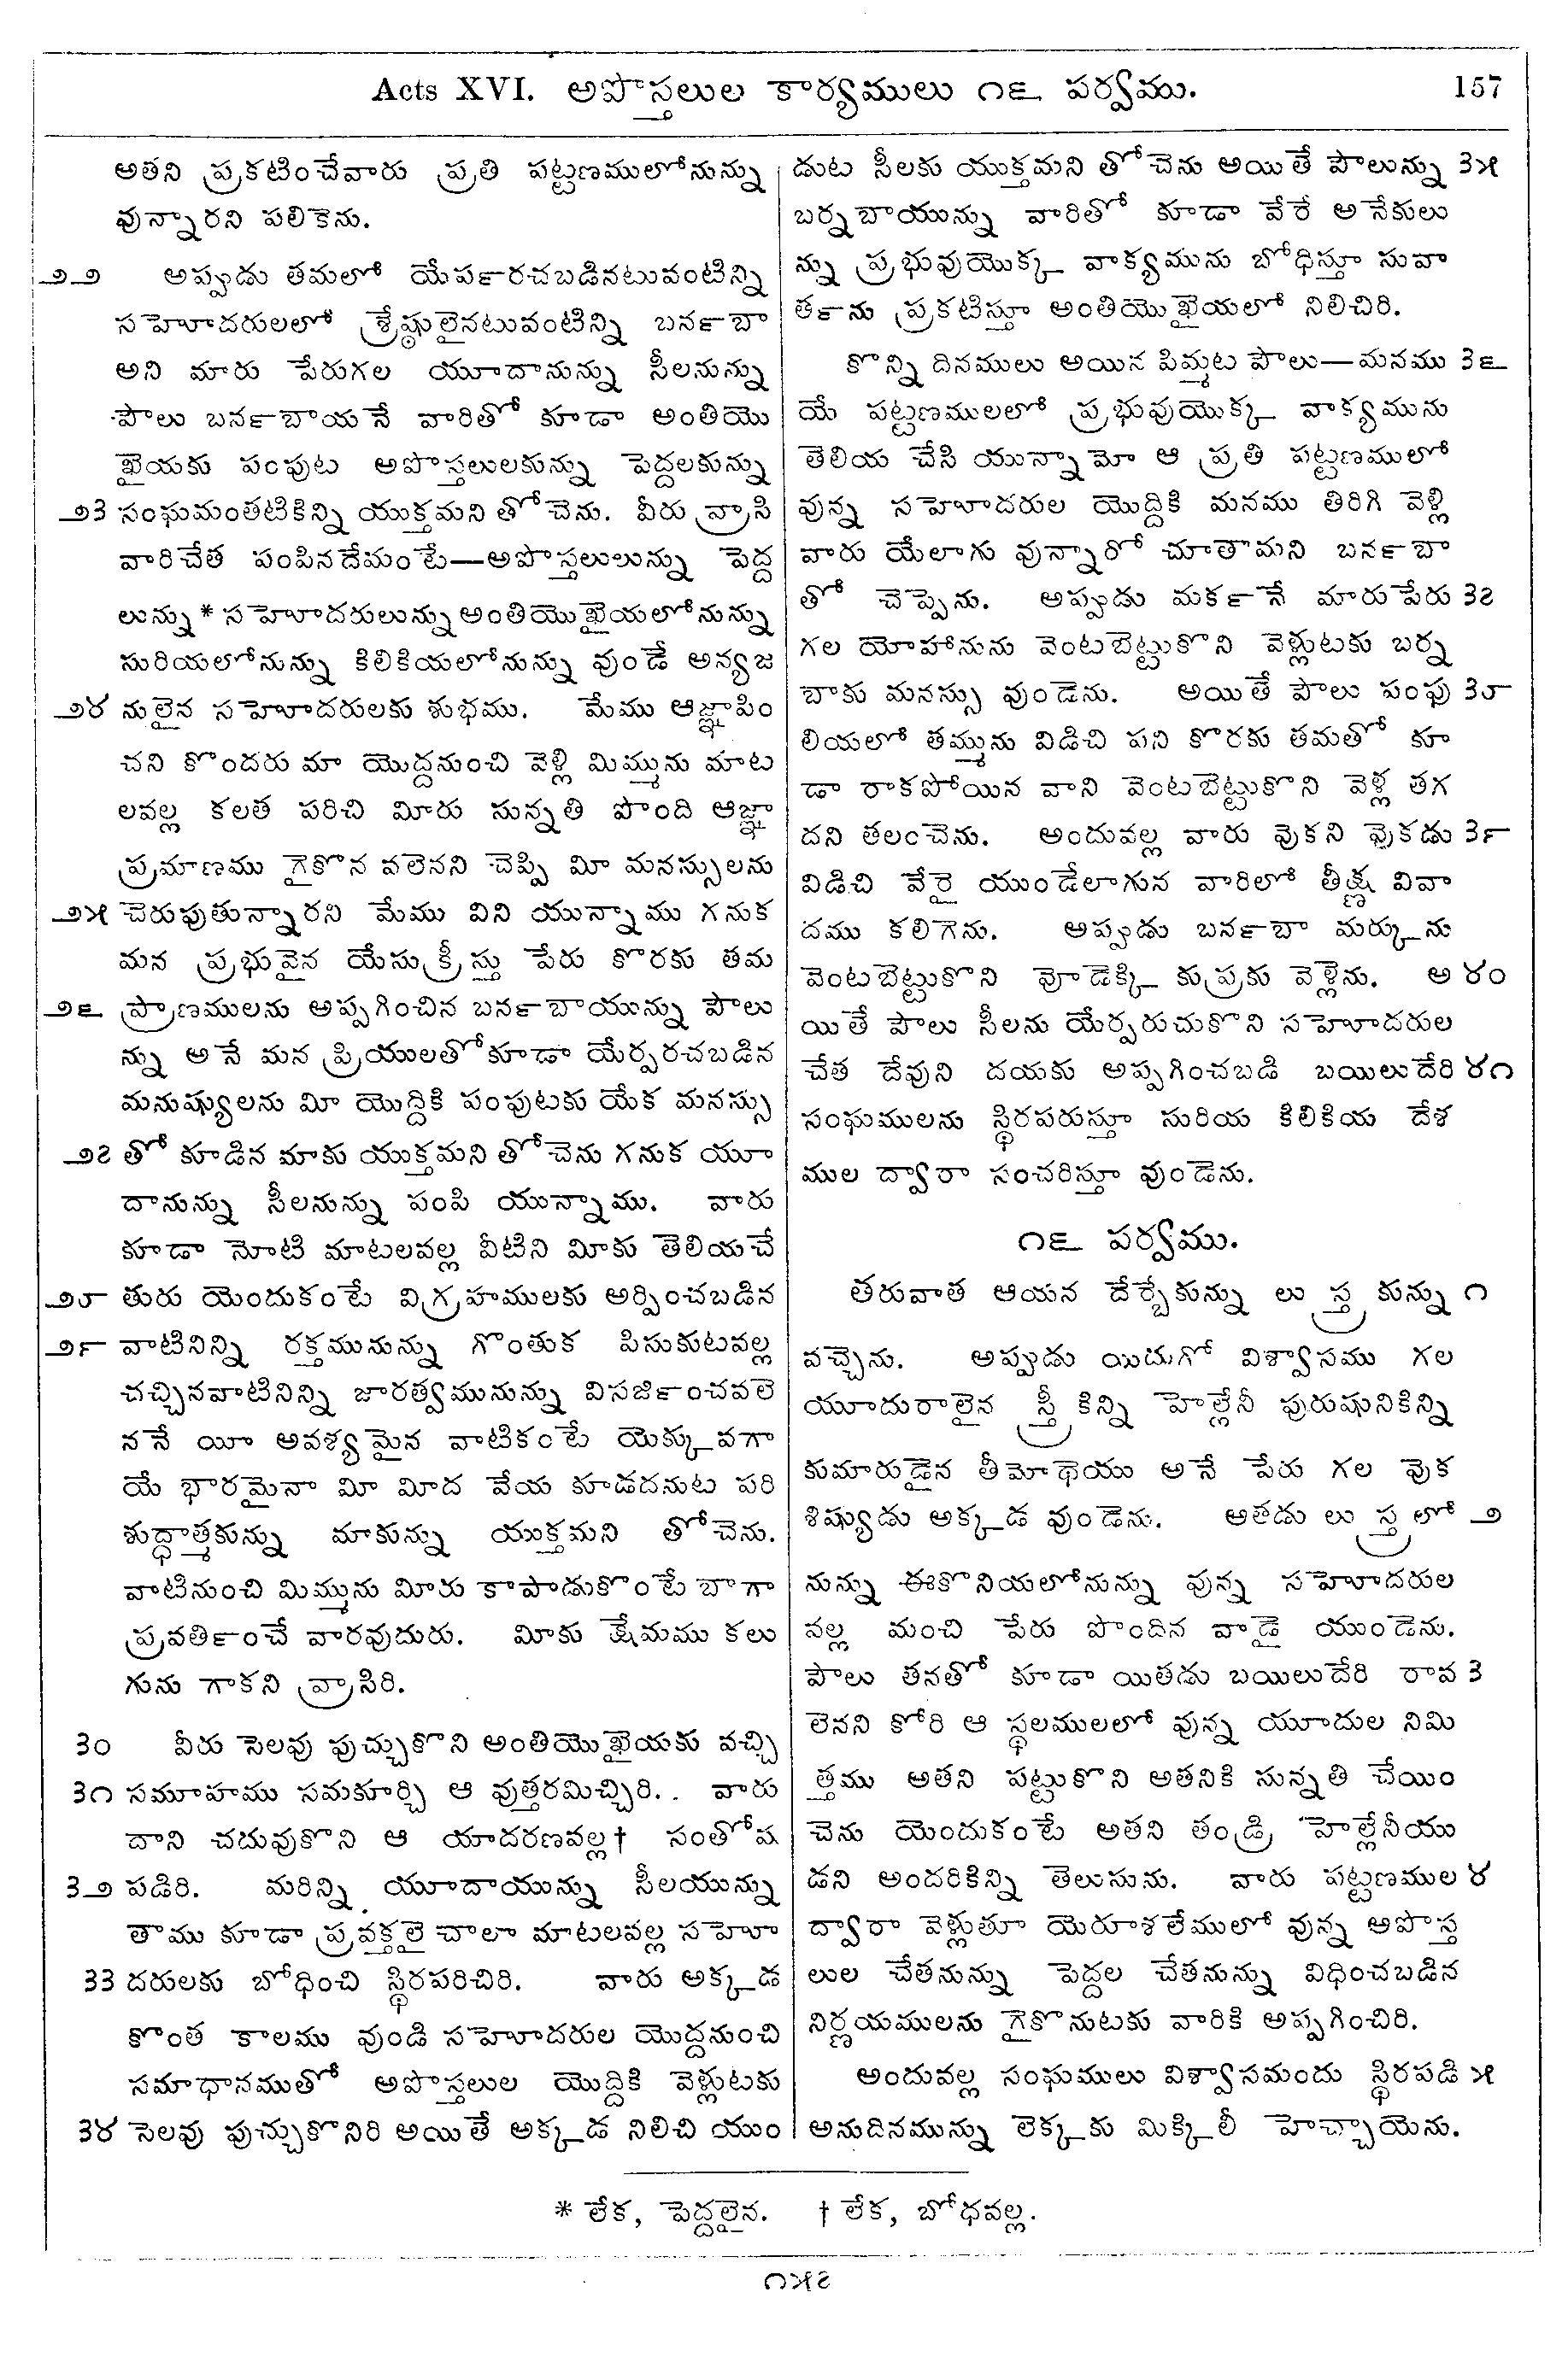 Acts XVI. అపొస్తలుల కార్యములు ౧౬ పర్వము. 157
అతని ప్రకటించేవారు ప్రతి పట్టణములోనున్ను
వున్నారని పలికెను.
౨౨ అప్పుడు తమలో యేపర్‍రచబడినటువంటిన్ని
సహోదరులలో శ్రేష్ఠులైనటువంటిన్ని బనర్‍బా
అని మారు పేరుగల యూదానున్ను సీలనున్ను
పౌలు బనర్‍బాయనే వారితో కూడా అంతియొ
ఖైయకు పంపుట అపొస్తలులకున్ను పెద్దలకున్ను
౨౩ సంఘమంతటికిన్ని యుక్తమని తోచెను. వీరు వ్రాసి
వారిచేత పంపినదేమంటే—అపొస్తలులున్ను పెద్ద
లున్ను * సహోదరులున్ను అంతియొఖైయలోనున్ను
సురియలోనున్ను కిలికియలోనున్ను వుండే అన్యజ
౨౪ నులైన సహోదరులకు శుభము. మేము ఆజ్ఞాపిం
చని కొందరు మా యొద్దనుంచి వెళ్లి మిమ్మును మాట
లవల్ల కలత పరిచి మీరు సున్నతి పొంది ఆజ్ఞా
ప్రమాణము గైకొన వలెనని చెప్పి మీ మనస్సులను
౨౫ చెరుపుతున్నారని మేము విని యున్నాము గనుక
మన ప్రభువైన యేసు క్రీస్తు పేరు కొరకు తమ
౨౬ ప్రాణములను అప్పగించిన బనర్‍బాయున్ను పౌలు
న్ను అనే మన ప్రియులతోకూడా యేర్పరచబడిన
మనుష్యులను మీ యొద్దికి పంపుటకు యేక మనస్సు
౨౭ తో కూడిన మాకు యుక్తమని తోచెను గనుక యూ
దానున్ను సీలనున్ను పంపి యున్నాము. వారు
కూడా నోటి మాటలవల్ల వీటిని మీకు తెలియచే
౨౮ తురు యెందుకంటే విగ్రహములకు అర్పించబడిన
౨౯ వాటినిన్ని రక్తమునున్ను గొంతుక పిసుకుటవల్ల
చచ్చినవాటినిన్ని జారత్వమునున్ను విసజిర్‍ంచవలె
ననే యీ అవశ్యమైన వాటికంటే యెక్కువగా
యే భారమైనా మీ మీద వేయ కూడదనుట పరి
శుద్ధాత్మకున్ను మాకున్ను యుక్తమని తోచెను.
వాటినుంచి మిమ్మును మీరు కాపాడుకొంటే బాగా
ప్రవతిర్‍ంచే వారవుదురు. మీకు క్షేమము కలు
గును గాకని వ్రాసిరి.
౩౦ వీరు సెలవు పుచ్చుకొని అంతియొఖైయకు వచ్చి
౩౧ సమూహము సమకూర్చి ఆ వుత్తరమిచ్చిరి.. వారు
దాని చదువుకొని ఆ యాదరణవల్ల† సంతోష
౩౨ పడిరి. మరిన్ని యూదాయున్ను సీలయున్ను
తాము కూడా ప్రవక్తలై చాలా మాటలవల్ల సహో
౩౩ దరులకు బోధించి స్థిరపరిచిరి. వారు అక్కడ
కొంత కాలము వుండి సహోదరుల యొద్దనుంచి
సమాధానముతో అపొస్తలుల యొద్దికి వెళ్లుటకు
౩౪ సెలవు పుచ్చుకొనిరి అయితే అక్కడ నిలిచి యుం
డుట సీలకు యుక్తమని తోచెను అయితే పౌలున్ను ౩౫
బర్నబాయున్ను వారితో కూడా వేరే అనేకులు
న్ను ప్రభువుయొక్క వాక్యమును బోధిస్తూ సువా
తర్‍ను ప్రకటిస్తూ అంతియొఖైయలో నిలిచిరి.
కొన్ని దినములు అయిన పిమ్మట పౌలు—మనము ౩౬
యే పట్టణములలో ప్రభువుయొక్క వాక్యమును
తెలియ చేసి యున్నామో ఆ ప్రతి పట్టణములో
వున్న సహోదరుల యొద్దికి మనము తిరిగి వెళ్లి
వారు యేలాగు వున్నారో చూతామని బనర్‍బా
తో చెప్పెను. అప్పుడు మకర్‍నే మారుపేరు ౩౭
గల యోహానును వెంటబెట్టుకొని వెళ్లుటకు బర్న
బాకు మనస్సు వుండెను. అయితే పౌలు పంఫు ౩౮
లియలో తమ్మును విడిచి పని కొరకు తమతో కూ
డా రాకపోయిన వాని వెంటబెట్టుకొని వెళ్ల తగ
దని తలంచెను. అందువల్ల వారు వుకని వుకడు ౩౯
విడిచి వేరై యుండేలాగున వారిలో తీక్ష్ణ వివా
దము కలిగెను. అప్పుడు బనర్‍బా మర్కును
వెంటబెట్టుకొని వోడెక్కి కుప్రకు వెళ్లెను. అ ౪౦
యితే పౌలు సీలను యేర్పరుచుకొని సహోదరుల
చేత దేవుని దయకు అప్పగించబడి బయిలుదేరి ౪౧
సంఘములను స్థిరపరుస్తూ సురియ కిలికియ దేశ
ముల ద్వారా సంచరిస్తూ వుండెను.
౧౬ పర్వము.
తరువాత ఆయన దేర్బేకున్ను లుస్త్రకున్ను ౧
వచ్చెను. అప్పుడు యిదుగో విశ్వాసము గల
యూదురాలైన స్త్రీకిన్ని హెల్లేనీ పురుషునికిన్ని
కుమారుడైన తీమోథెయు అనే పేరు గల వుక
శిష్యుడు అక్కడ వుండెను. అతడు లుస్త్రలో ౨
నున్ను ఈకొనియలోనున్ను వున్న సహోదరుల
వల్ల మంచి పేరు పొందిన వాడై యుండెను.
పౌలు తనతో కూడా యితడు బయిలుదేరి రావ ౩
లెనని కోరి ఆ స్థలములలో వున్న యూదుల నిమి
త్తము అతని పట్టుకొని అతనికి సున్నతి చేయిం
చెను యెందుకంటే అతని తండ్రి హెల్లేనీయు
డని అందరికిన్ని తెలుసును. వారు పట్టణముల ౪
ద్వారా వెళ్లుతూ యెరూశలేములో వున్న అపొస్త
లుల చేతనున్ను పెద్దల చేతనున్ను విధించబడిన
నిర్ణయములను గైకొనుటకు వారికి అప్పగించిరి.
అందువల్ల సంఘములు విశ్వాసమందు స్థిరపడి ౫
అనుదినమున్ను లెక్కకు మిక్కిలీ హెచ్చాయెను.
* లేక, పెద్దలైన. † లేక, బోధవల్ల.
౧౫౭